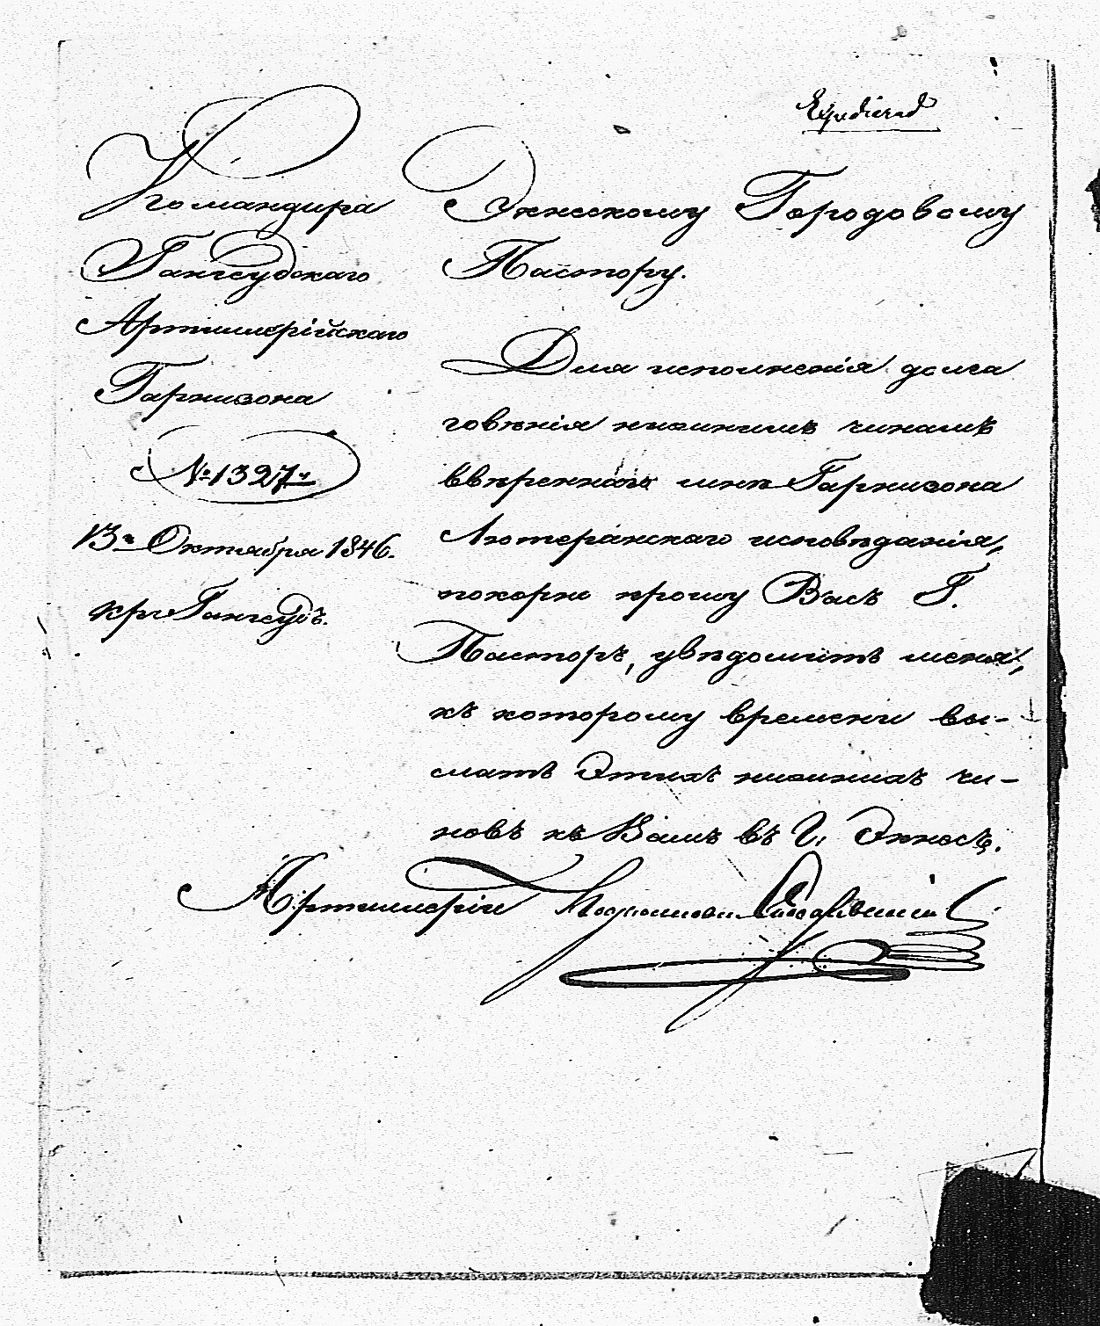 Expedierad
Командира
Гангеудскаго
Артиллерійскаго
Гарнизона
№ 1327й
13го Октября 1846.
кр. Гангеудъ.
Экнескому Городовому
Пастору.
Для исполненія долга
говѣнія нижнимъ чинамъ
ввѣреннаго мнѣ Гарнизона
Лютеранскаго исповѣданія,
покорно прошу Васъ Г.
Пасторъ, увѣдомить меня,
къ которому времени вы-
слать этихъ нижнихъ чи-
новъ къ Вамъ въ г. Экнесъ.
Артиллеріи